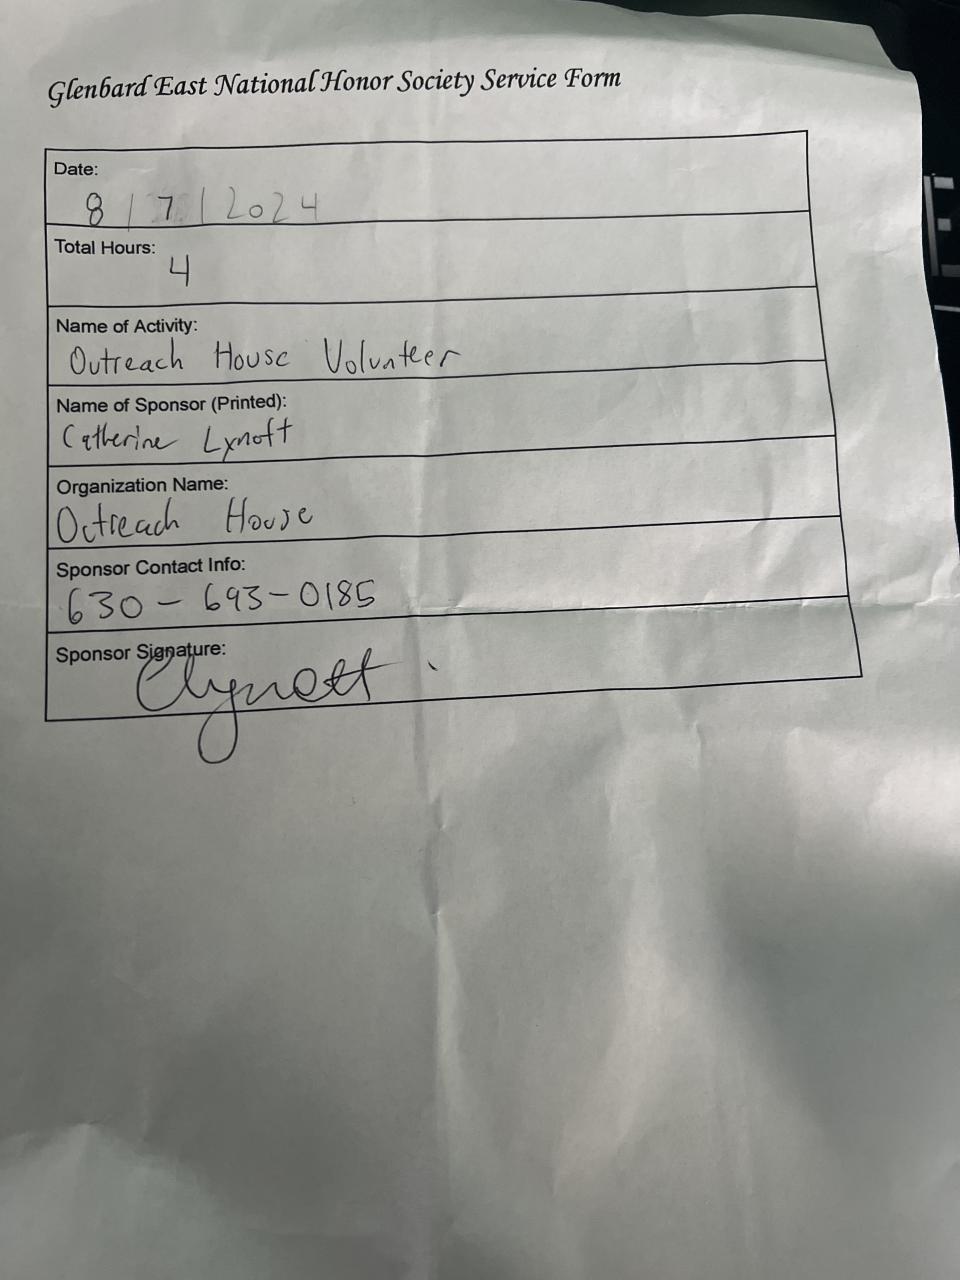 Glenbard East National Honor Society Service Form
Date:
8/7/2024
Total Hours:
4
Name of Activity:
Outreach House Volunteer
Name of Sponsor (Printed):
Catherine Lynott
Organization Name:
Outreach House
Sponsor Contact Info:
630-693-0185
Sponsor Signature:
Clynott
E